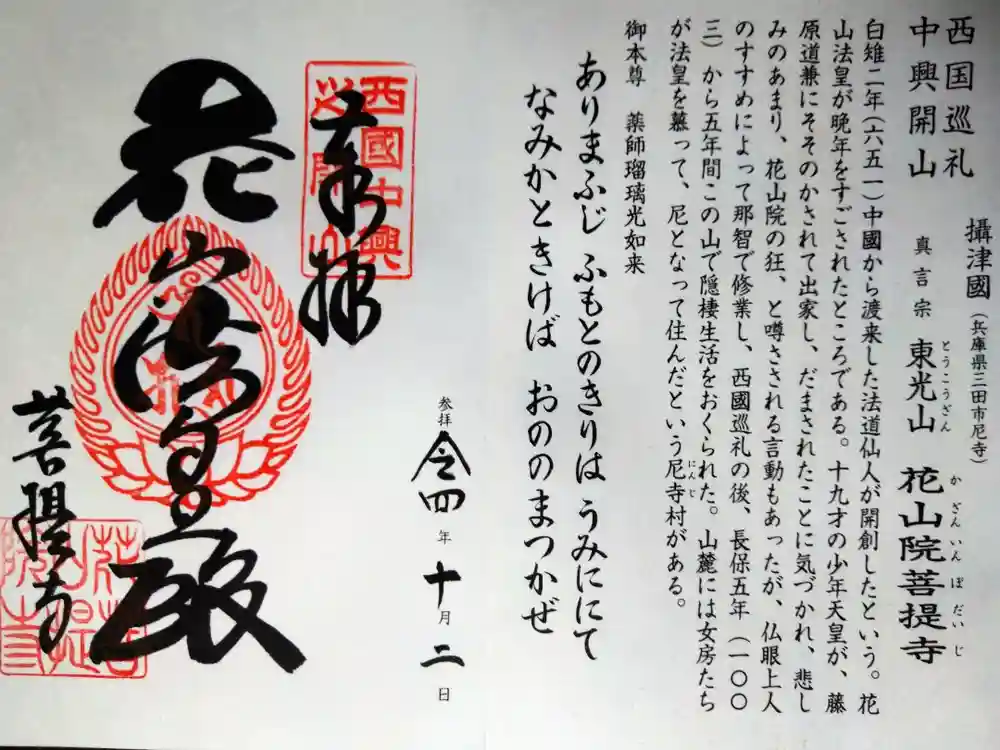 西国巡礼
中興開山
攝津國(兵庫県三田市尼寺)
真言宗 東光山 花山院菩提寺
とうこうざん
かざんいんぼだいじ
白雉二年(六五一)中國から渡来した法道仙人が開創したという。花
山法皇が晩年をすごされたところである。十九才の少年天皇が、藤
原道兼にそそのかされて出家し、だまされたことに気づかれ、悲し
みのあまり、花山院の狂、と噂さされる言動もあったが、仏眼上人
のすすめによって那智で修業し、西國巡礼の後、長保五年(一〇〇
三)から五年間この山で隠棲生活をおくられた。山麓には女房たち
が法皇を慕って、尼となって住んだという尼寺村がある。
にんじ
御本尊 薬師瑠璃光如来
ありまふじ ふもとのきりは うみににて
なみかときけば おののまつかぜ
西國中興
開山
奉拝
花山法皇殿
参拝 令四年十月二日
菩提寺